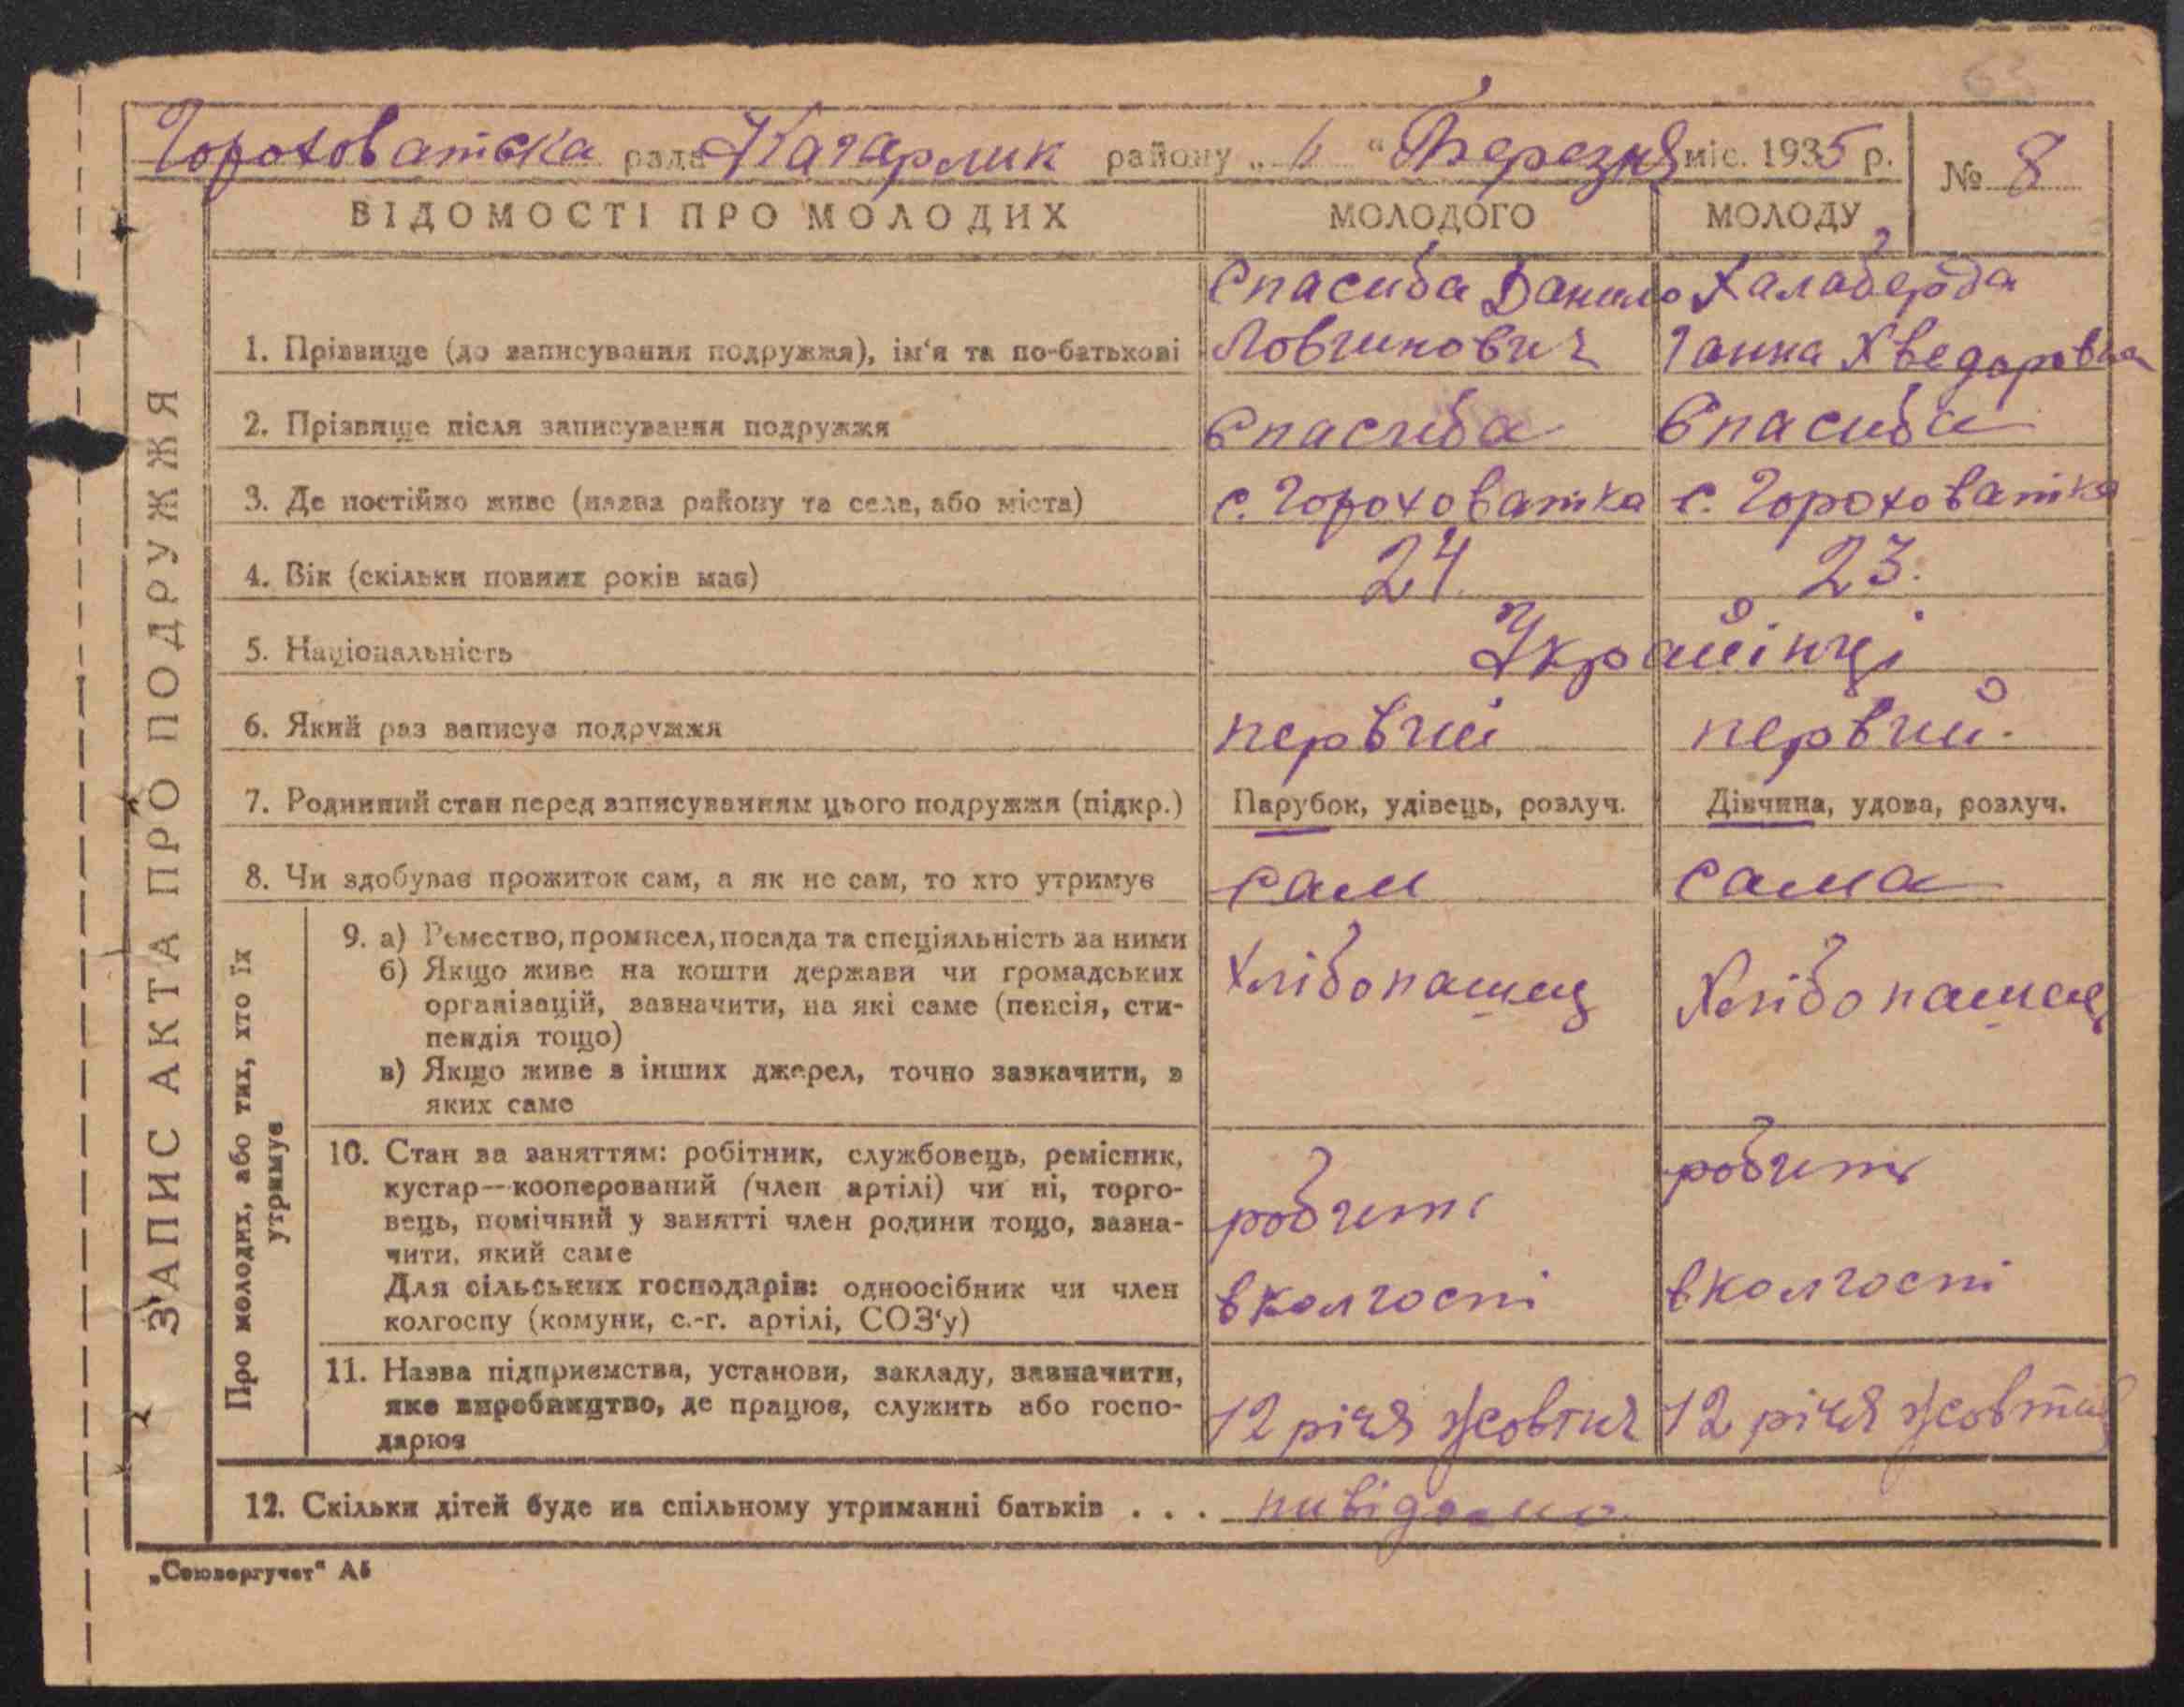 63
Гороховатска рада Кагарлик району „ 6 “ Березня міс. 1935 р. № 8
ВІДОМОСТІ ПРО МОЛОДИХ МОЛОДОГО МОЛОДУ
ЗАПИС АКТА ПРО ПОДРУЖЖЯ
Спасиба Данило Халаберда
1. Прізвище (до записування подружжя), ім'я та по-батькові Ловгинович Ганна Хведоровна
2. Прізвище після записування подружжя Спасиба Спасиба
3. Де постійно живе (назва району та села, або міста) с. Гороховатка с. Гороховатка
4. Вік (скільки повних років має) 24 23.
5. Національність Украйінці
6. Який раз записує подружжя первий первий.
7. Родинний стан перед записуванням цього подружжя (підкр.) Парубок, удівець, розлуч. Дівчина, удова, розлуч.
8. Чи здобуває прожиток сам, а як не сам, то хто утримує сам сама
Про молодих, або тих, хто їх
утримує
9. а) Ремество, промисел, посада та спеціяльність за ними
б) Якщо живе на кошти держави чи громадських Хлібопашец Хлібопашец
організацій, зазначити, на які саме (пенсія, сти-
пендія тощо)
в) Якщо живе з інших джерел, точно зазначити, з
яких саме
10. Стан за заняттям: робітник, службовець, ремісник, робить
кустар—кооперований (член артілі) чи ні, торго-
вець, помічний у занятті член родини тощо, зазна- робить
чити, який саме
Для сільських господарів: одноосібник чи член вколгоспі вколгоспі
колгоспу (комуни, с.-г. артілі, СОЗ'у)
11. Назва підприємства, установи, закладу, зазначити,
яке виробництво, де працює, служить або госпо- 12 річя жовтня 12 річя жовтня
дарює
12. Скільки дітей буде на спільному утриманні батьків . . . нивідомо.
„Союзоргучет“ А5